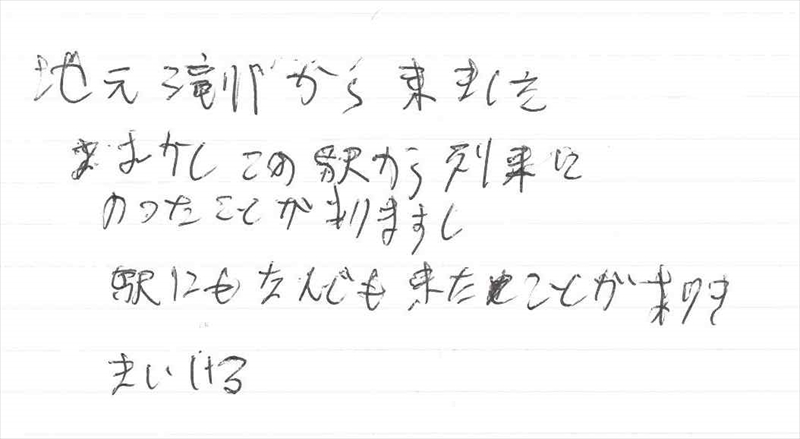 地元滝川から来ました
むかしこの駅から列車に
のったことがありますし
駅にもなんども来たことがあります
まいける